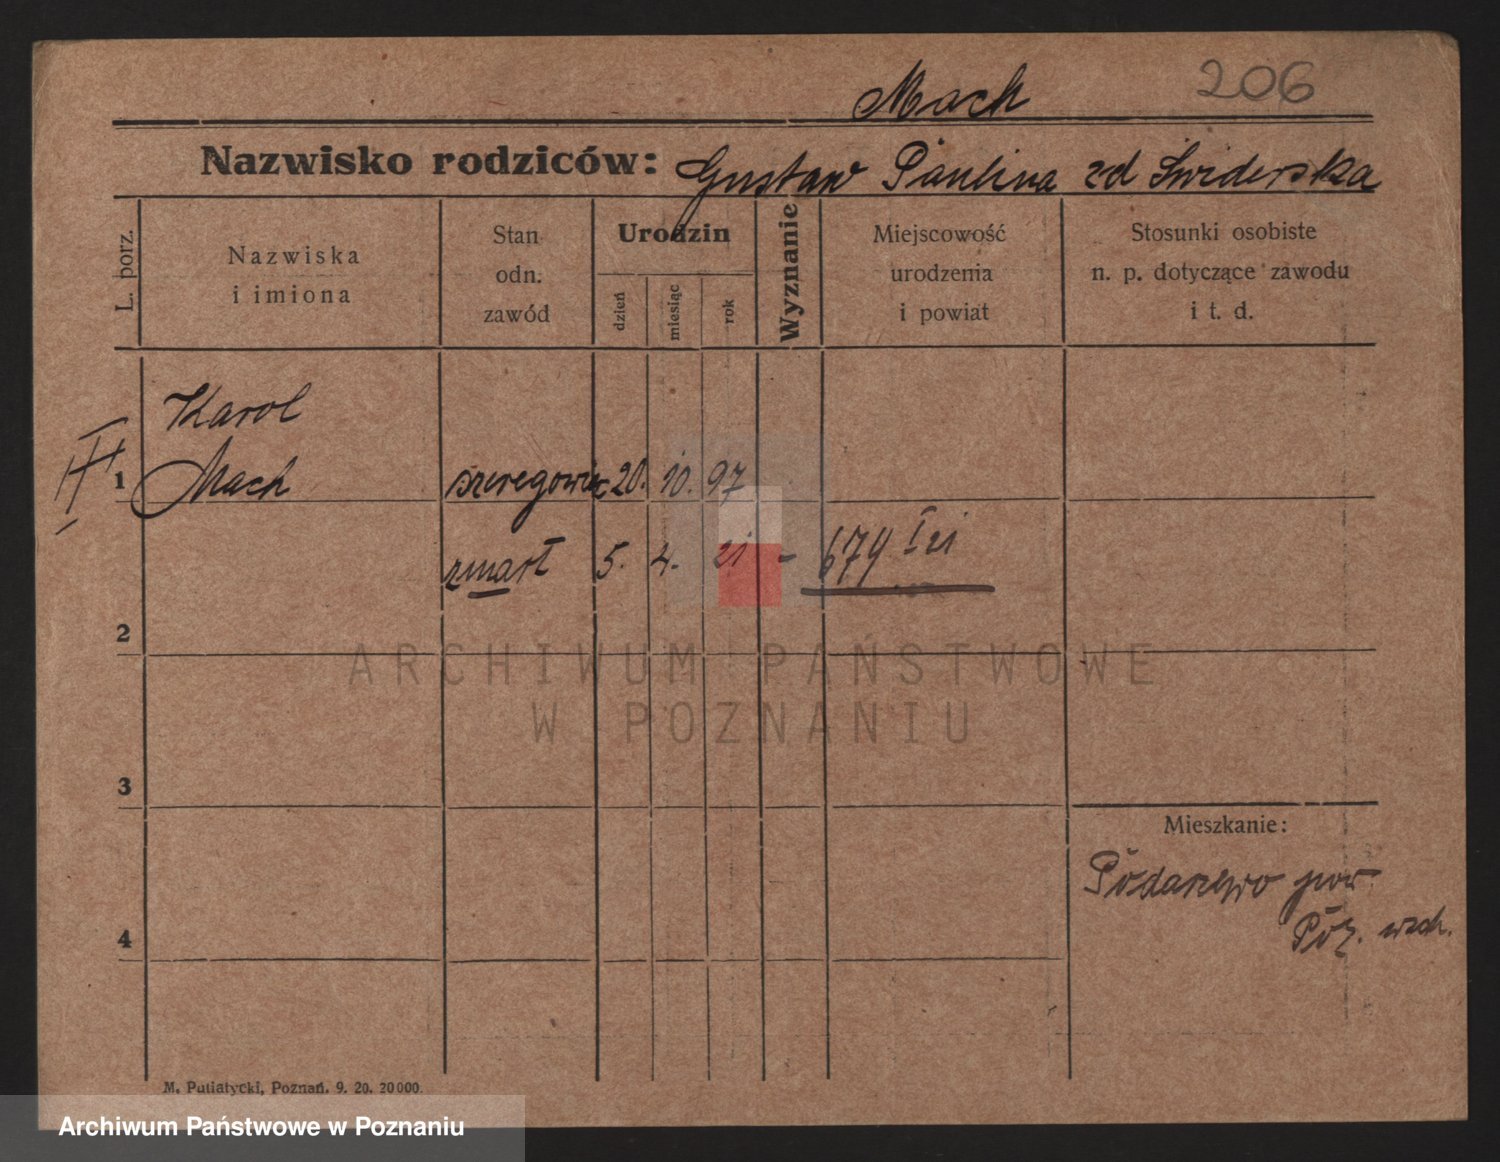 Mach 206
Nazwisko rodziców: Gustaw Paulina zd Świderska
L. porz.
Nazwiska
i imiona
Stan
odn.
zawód
Urodzin
dzień
miesiąc
rok
Wyznanie
Miejscowość
urodzenia
i powiat
Stosunki osobiste
n. p. dotyczące zawodu
i t. d.
Karol
1 Mach szeregowiec 20. 10. 97
zmarł 5. 4. 21 - 679
2
3
4
ARCHIWUM PAŃSTWOWE
W POZNANIU
Mieszkanie:
pow.
Poz. wsch.
M. Putiatycki, Poznań. 9. 20. 20000.
Archiwum Państwowe w Poznaniu